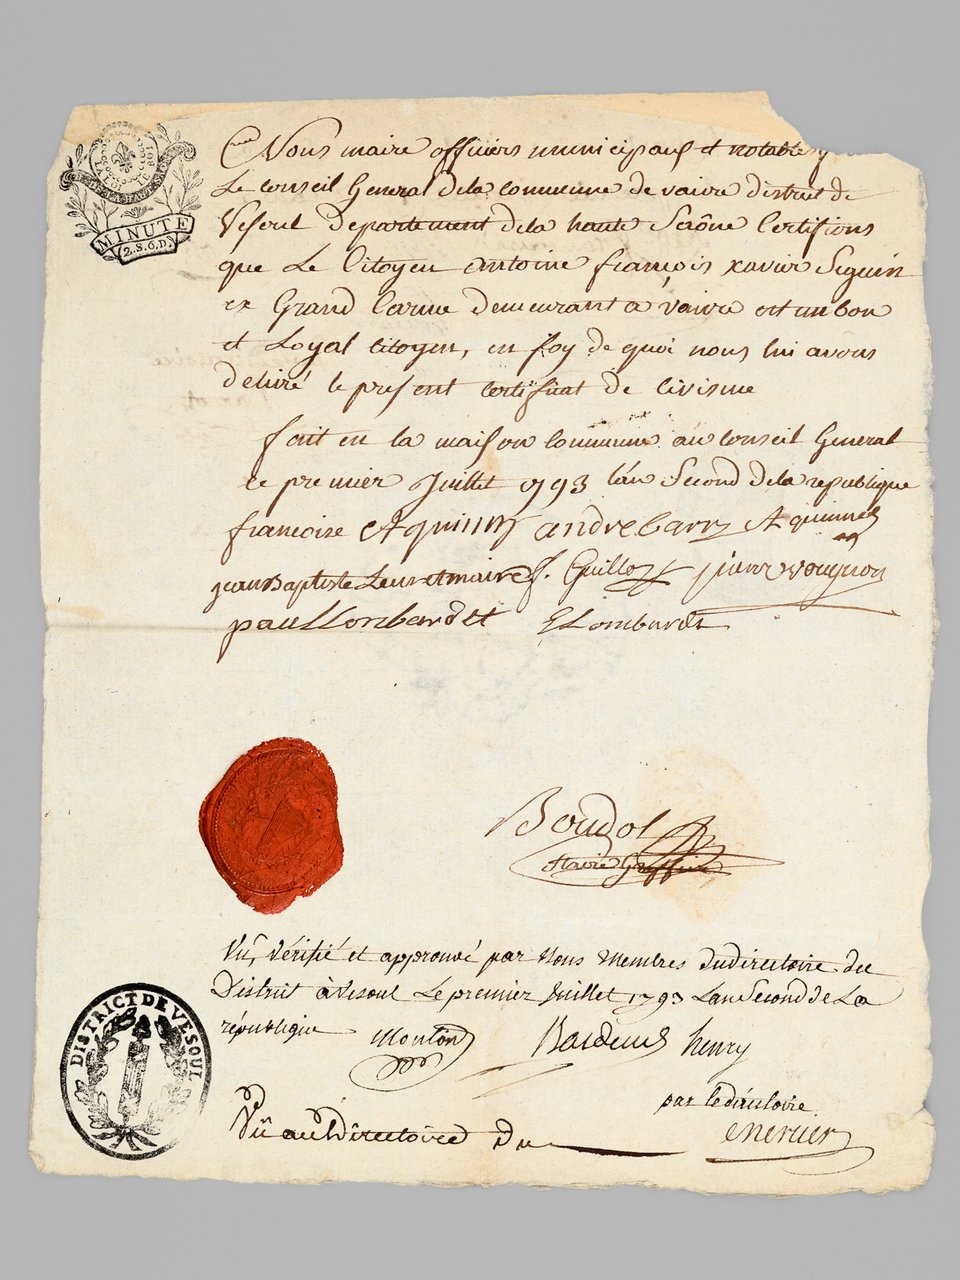 LA LOI LE ROI
MINUTE
2.S.6.D.
Nous maire officiers municipaux et notables
Le conseil General de la commune de vaivre district de
Vesoul Departement de la haute Saône Certifions
que Le Citoyen antoine françois xavier Seguin
ex Grand Carme demeurant a vaivre est un bon
et Loyal Citoyen, en foy de quoi nous lui avons
délivré le present certificat de civisme
fait en la maison Commune au conseil General
le premier Juillet 1793 l'an Second de la république
françoise andrebarry
Jean Baptiste maire J. Guilloz pierre vougnon
paul Lombardet Lombardet
Boudot
Vu, vérifié et approuvé par Nous Membres du directoire du
District à Vesoul Le premier Juillet 1793 L'an Second de La
république Mouton henry
DISTRICT DE VESOUL
par le directoire
Vu au Directoire du